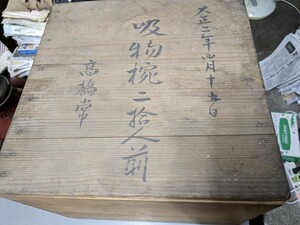 大正二年四月十五日
吸物椀二拾人前
高橋常